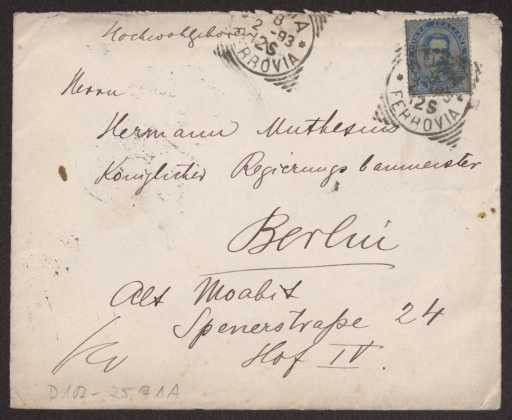 Hochwohlgeboren
8
2 -93
12S
FERROVIA
12S
FERROVIA
Herrn
Hermann Muthesius
Königlicher Regierungsbaumeister
Berlin
Alt Moabit
Spenerstraße 24
Hof IV.
D102-25.91A